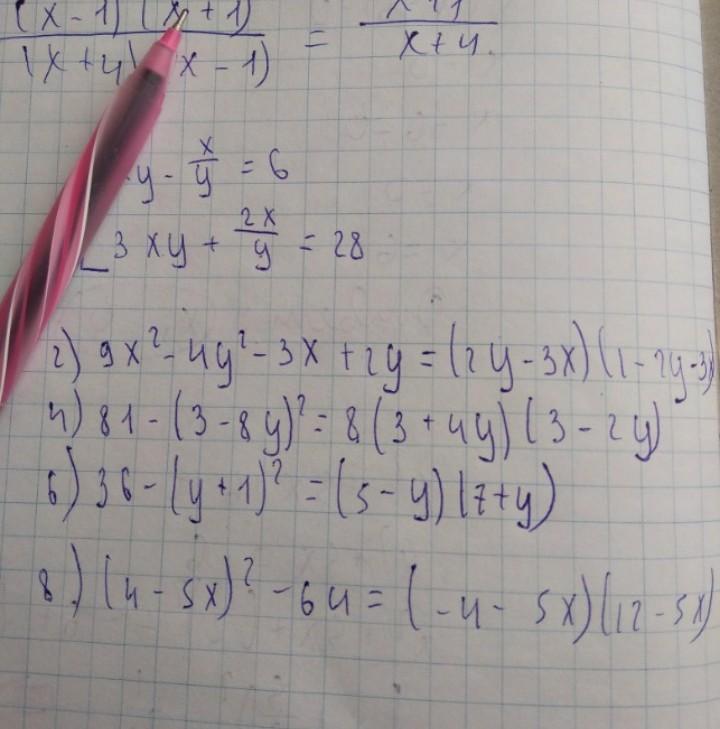 (x-1)(x+1) / (x+4)(x-1) = x+1 / x+4
y - x/y = 6
3xy + 2x/y = 28
2) 9x² - 4y² - 3x + 2y = (2y - 3x)(1 - 2y - 3x)
4) 81 - (3 - 8y)² = 8(3 + 4y)(3 - 2y)
6) 36 - (y + 1)² = (5 - y)(7 + y)
8) (4 - 5x)² - 64 = (-4 - 5x)(12 - 5x)